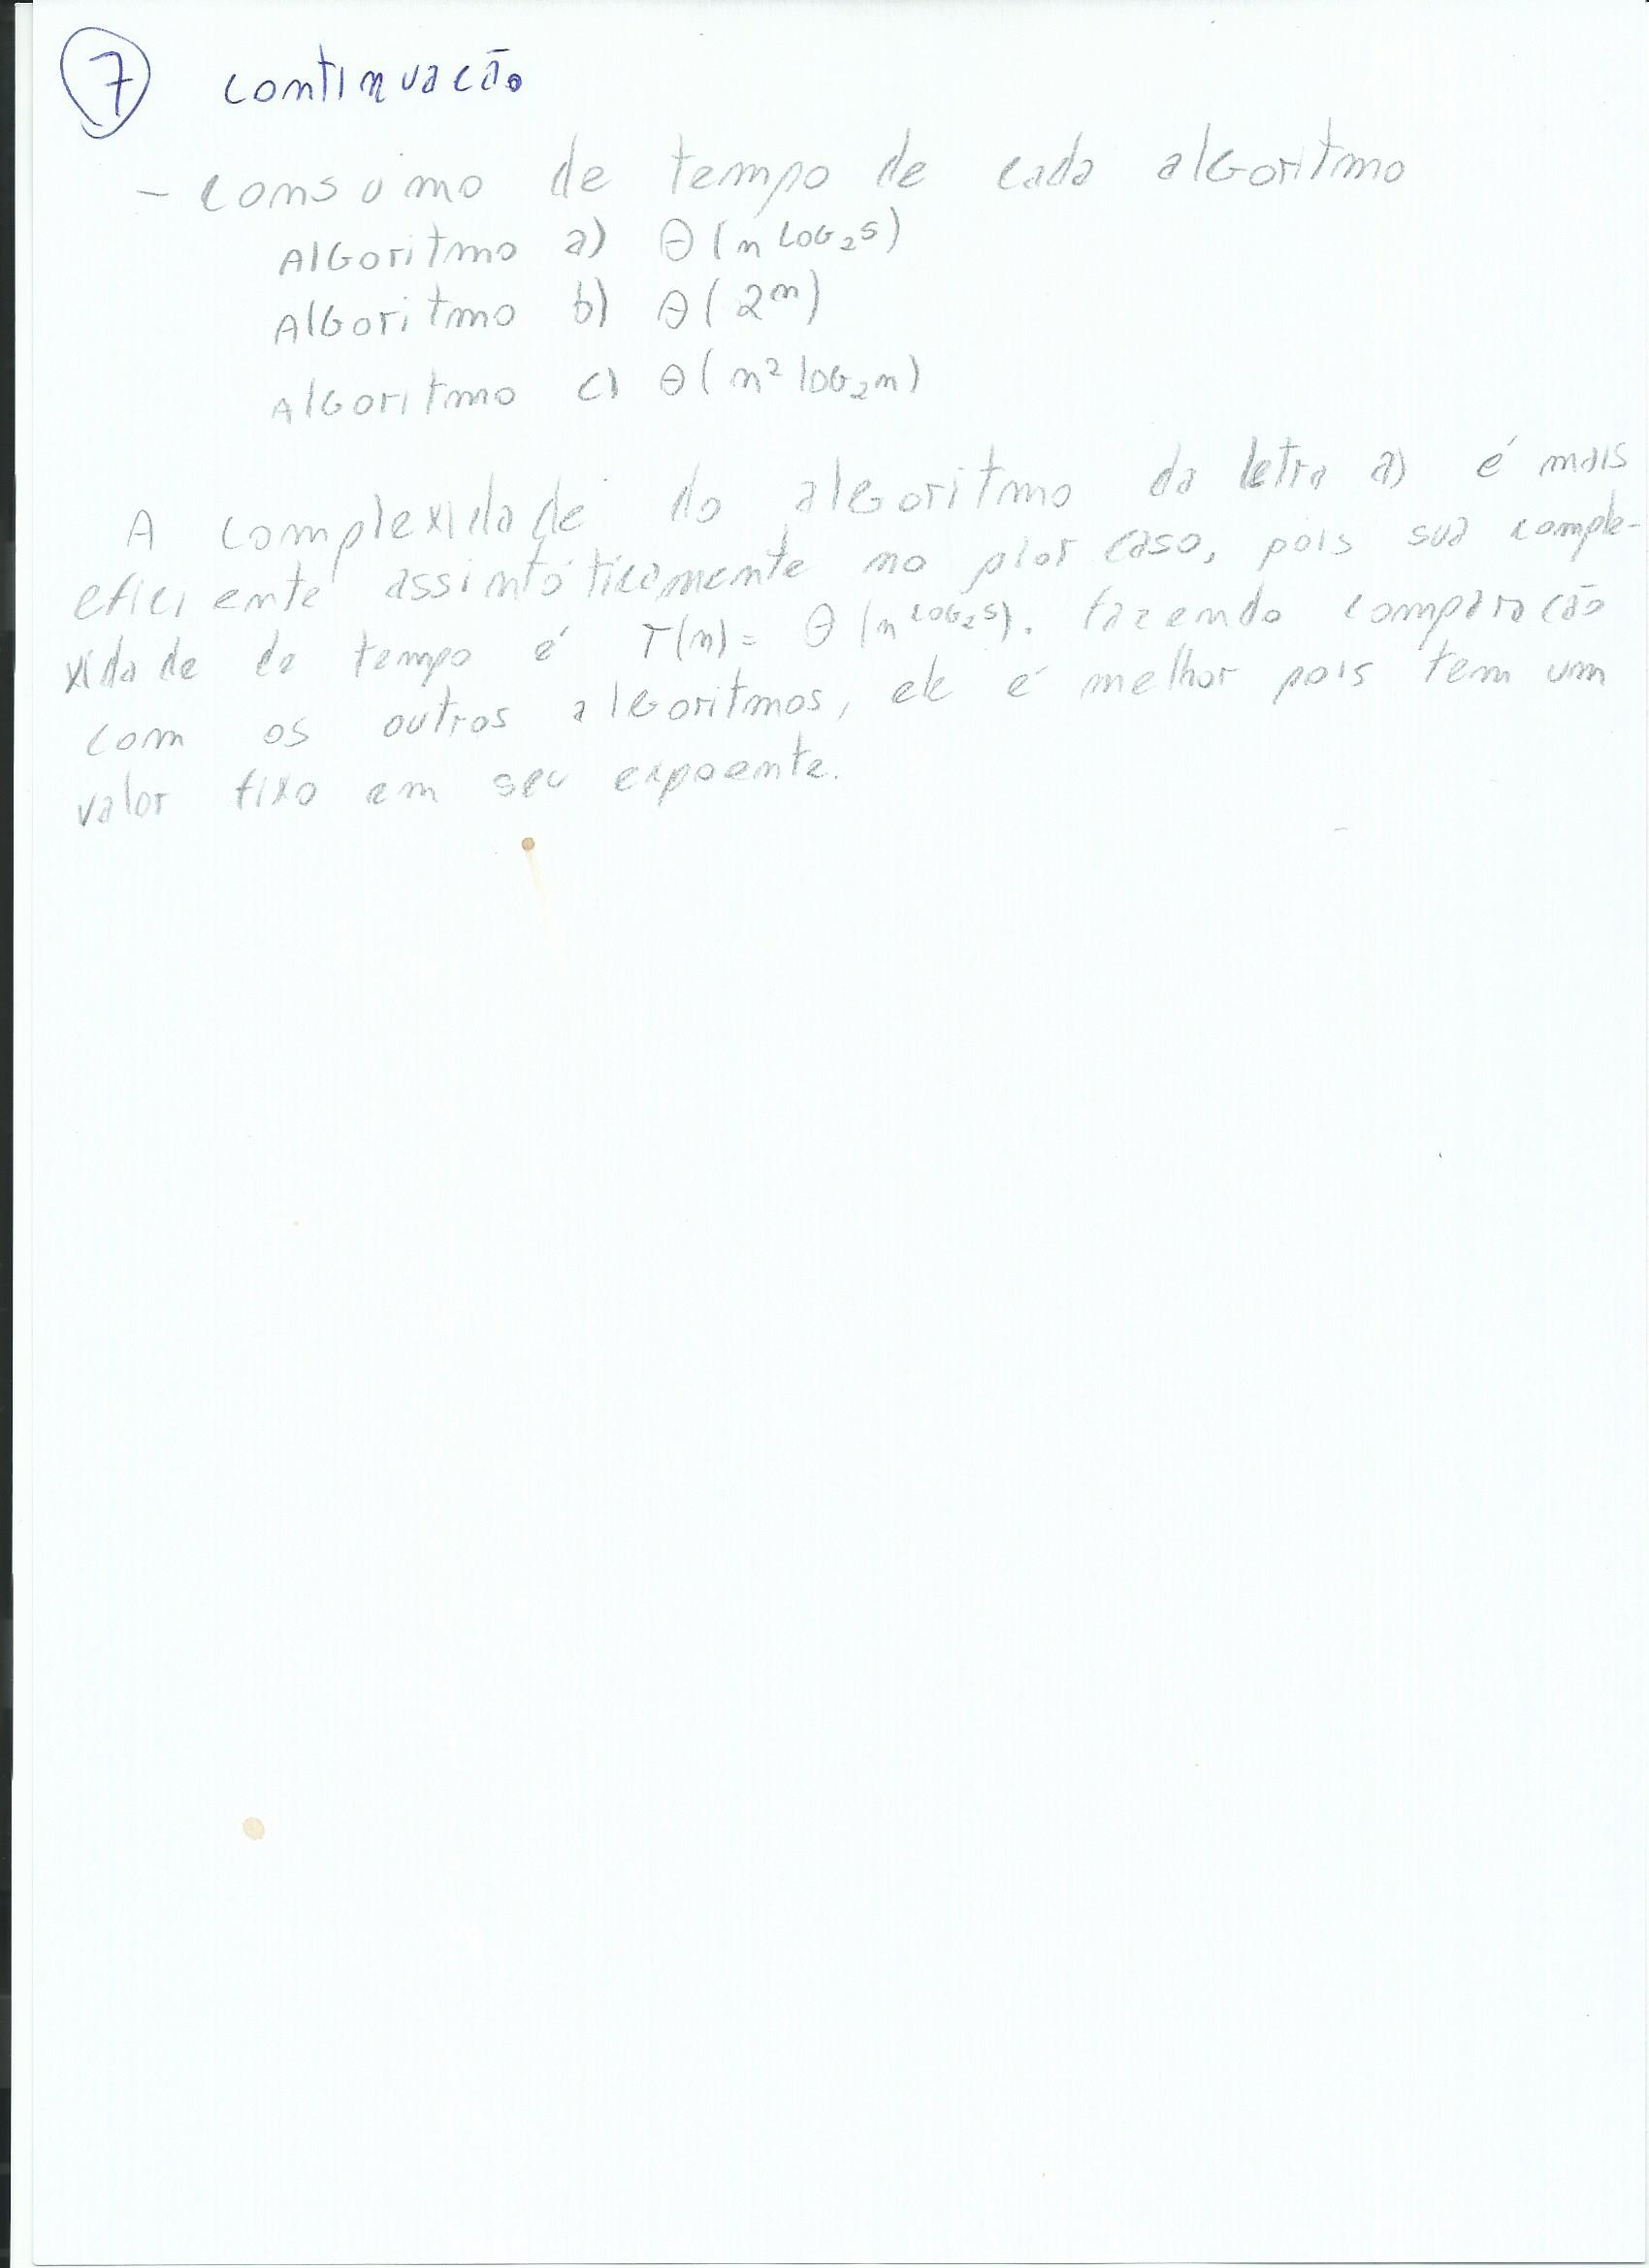 7 continuacão
- consumo de tempo de cada algoritmo
Algoritmo a) Θ(n^log₂5)
Algoritmo b) Θ(2ⁿ)
Algoritmo c) Θ(n² log₂n)
A complexidade do algoritmo da letra a) é mais
eficiente assintóticamente no pior caso, pois sua comple-
xidade de tempo é T(n) = Θ(n^log₂5). fazendo comparacão
com os outros algoritmos, ele é melhor pois tem um
valor fixo em seu expoente.